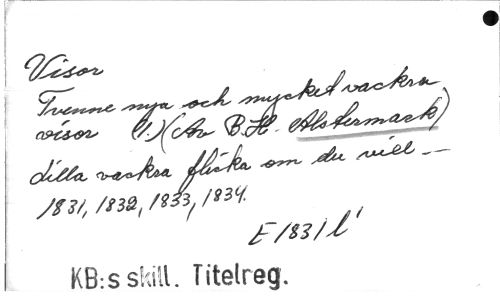 Visor
Tvenne nya och mycket vackra
visor (1.) (Av B.H. Alstermark)
Lilla vackra flicka om du vill —
1831, 1832, 1833, 1834.
E 1831 l'
KB:s skill. Titelreg.